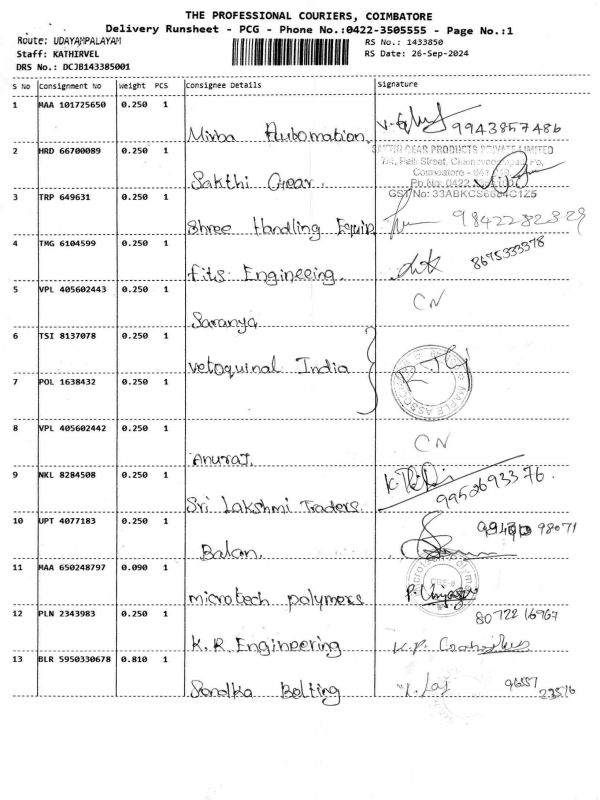 THE PROFESSIONAL COURIERS, COIMBATORE
Delivery Runsheet - PCG - Phone No.:0422-3505555 - Page No.:1
Route: UDAYAMPALAYAM
RS No.: 1433850
Staff: KATHIRVEL
RS Date: 26-Sep-2024
DRS No.: DCJB143385001
S No Consignment No Weight PCS Consignee Details Signature
1 MAA 101725650 0.250 1
Misba Automation. 9943857486
2 HRD 66700089 0.250 1
SAKTHI GEAR PRODUCTS PRIVATE LIMITED
Sakthi Gear.
GST No: 33ABKCS6684C1Z5
3 TRP 649631 0.250 1
Shree Handling Equip
4 TMG 6104599 0.250 1
8675333378
Fits Engineeing.
5 VPL 405602443 0.250 1
CN
Saranya
6 TSI 8137078 0.250 1
vetoquinal India
7 POL 1638432 0.250 1
8 VPL 405602442 0.250 1
CN
Anuraj.
9 NKL 8284508 0.250 1
Sri Lakshmi Traders. 9952693376.
10 UPT 4077183 0.250 1
98071
Balan.
11 MAA 650248797 0.090 1
microtech polymers
12 PLN 2343983 0.250 1
K.R. Engineering
13 BLR 5950330678 0.810 1
Sonolka Bolting